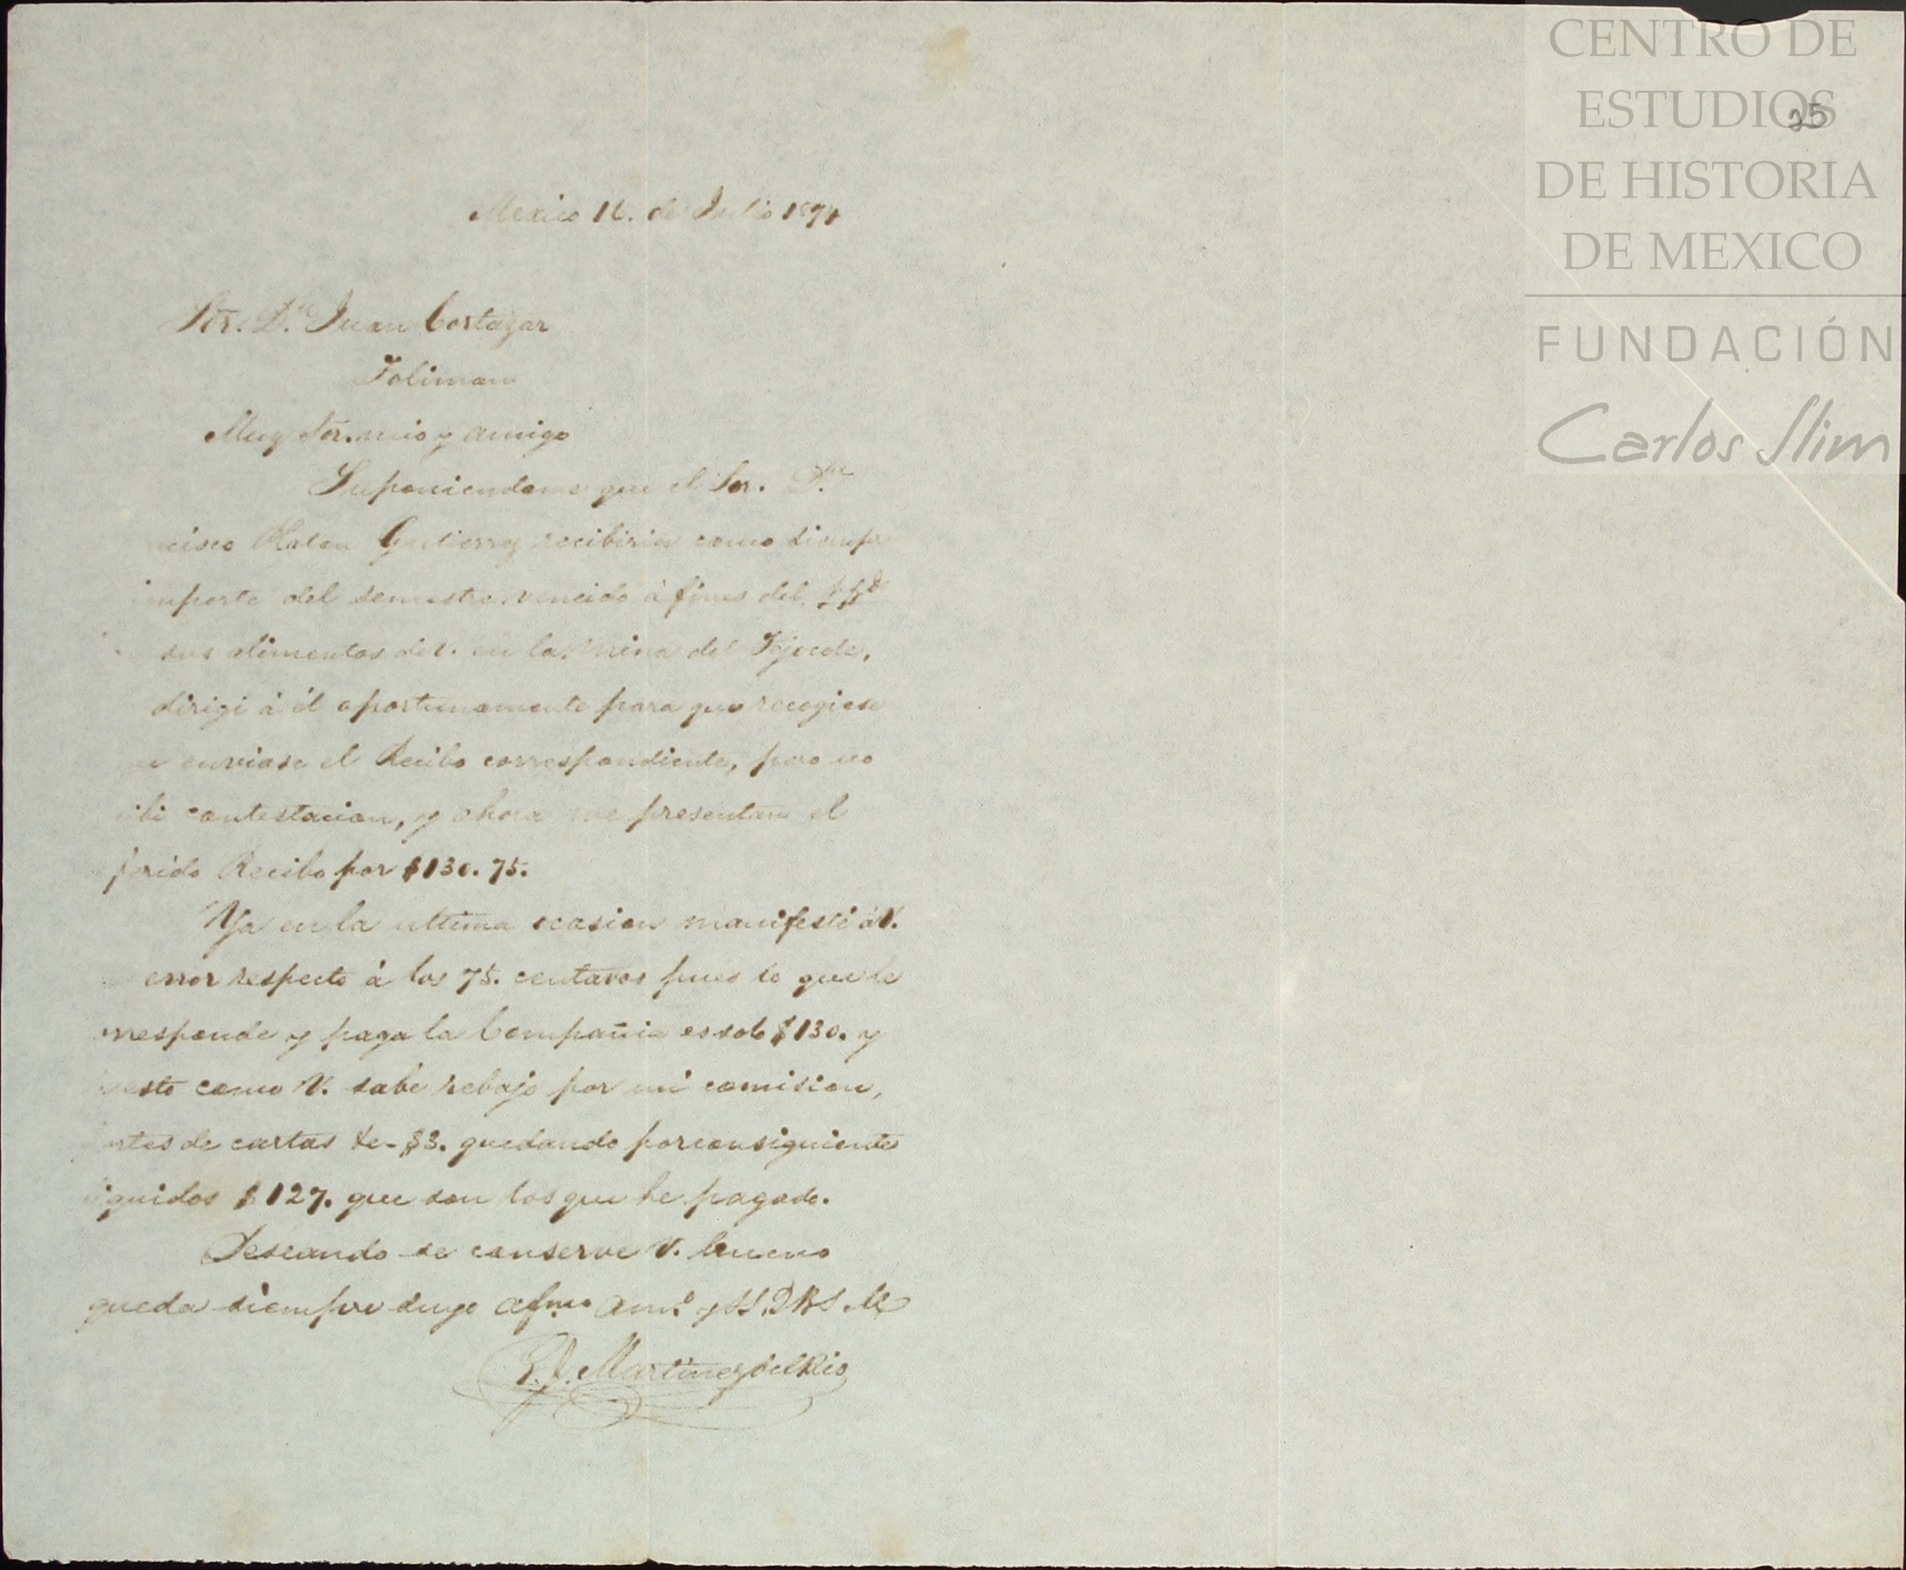 CENTRO DE
ESTUDIOS
DE HISTORIA
DE MEXICO
FUNDACIÓN
Carlos Slim
25
Mexico 16. de Julio 189
Sor. Dn. Juan Cortazar
Toliman
Muy Sor. mio y amigo
Suponiendome que el Sor. Dn
ncisco Gutierrez recibiria como siempre
importe del semestre vencido á fines del
sus alimentos de V. en la mina del Tejocote,
dirigi á él oportunamente para que recogiese
enviase el Recibo correspondiente, pero no
ibi contestacion, y ahora me presentan el
ferido Recibo por $130.75.
Ya en la ultima ocasion manifesté á V.
error respecto á los 75. centavos pues lo que le
rresponde y paga la Compañia es solo $130. y
esto como V. sabe rebajo por mi comision,
portes de cartas &e- $3. quedando por consiguiente
iquidos $127. que son los que he pagado.
Deseando se conserve V. bueno
queda siempre suyo afmo amo. y SS. Q B S M
P. J. Martinez del Rio